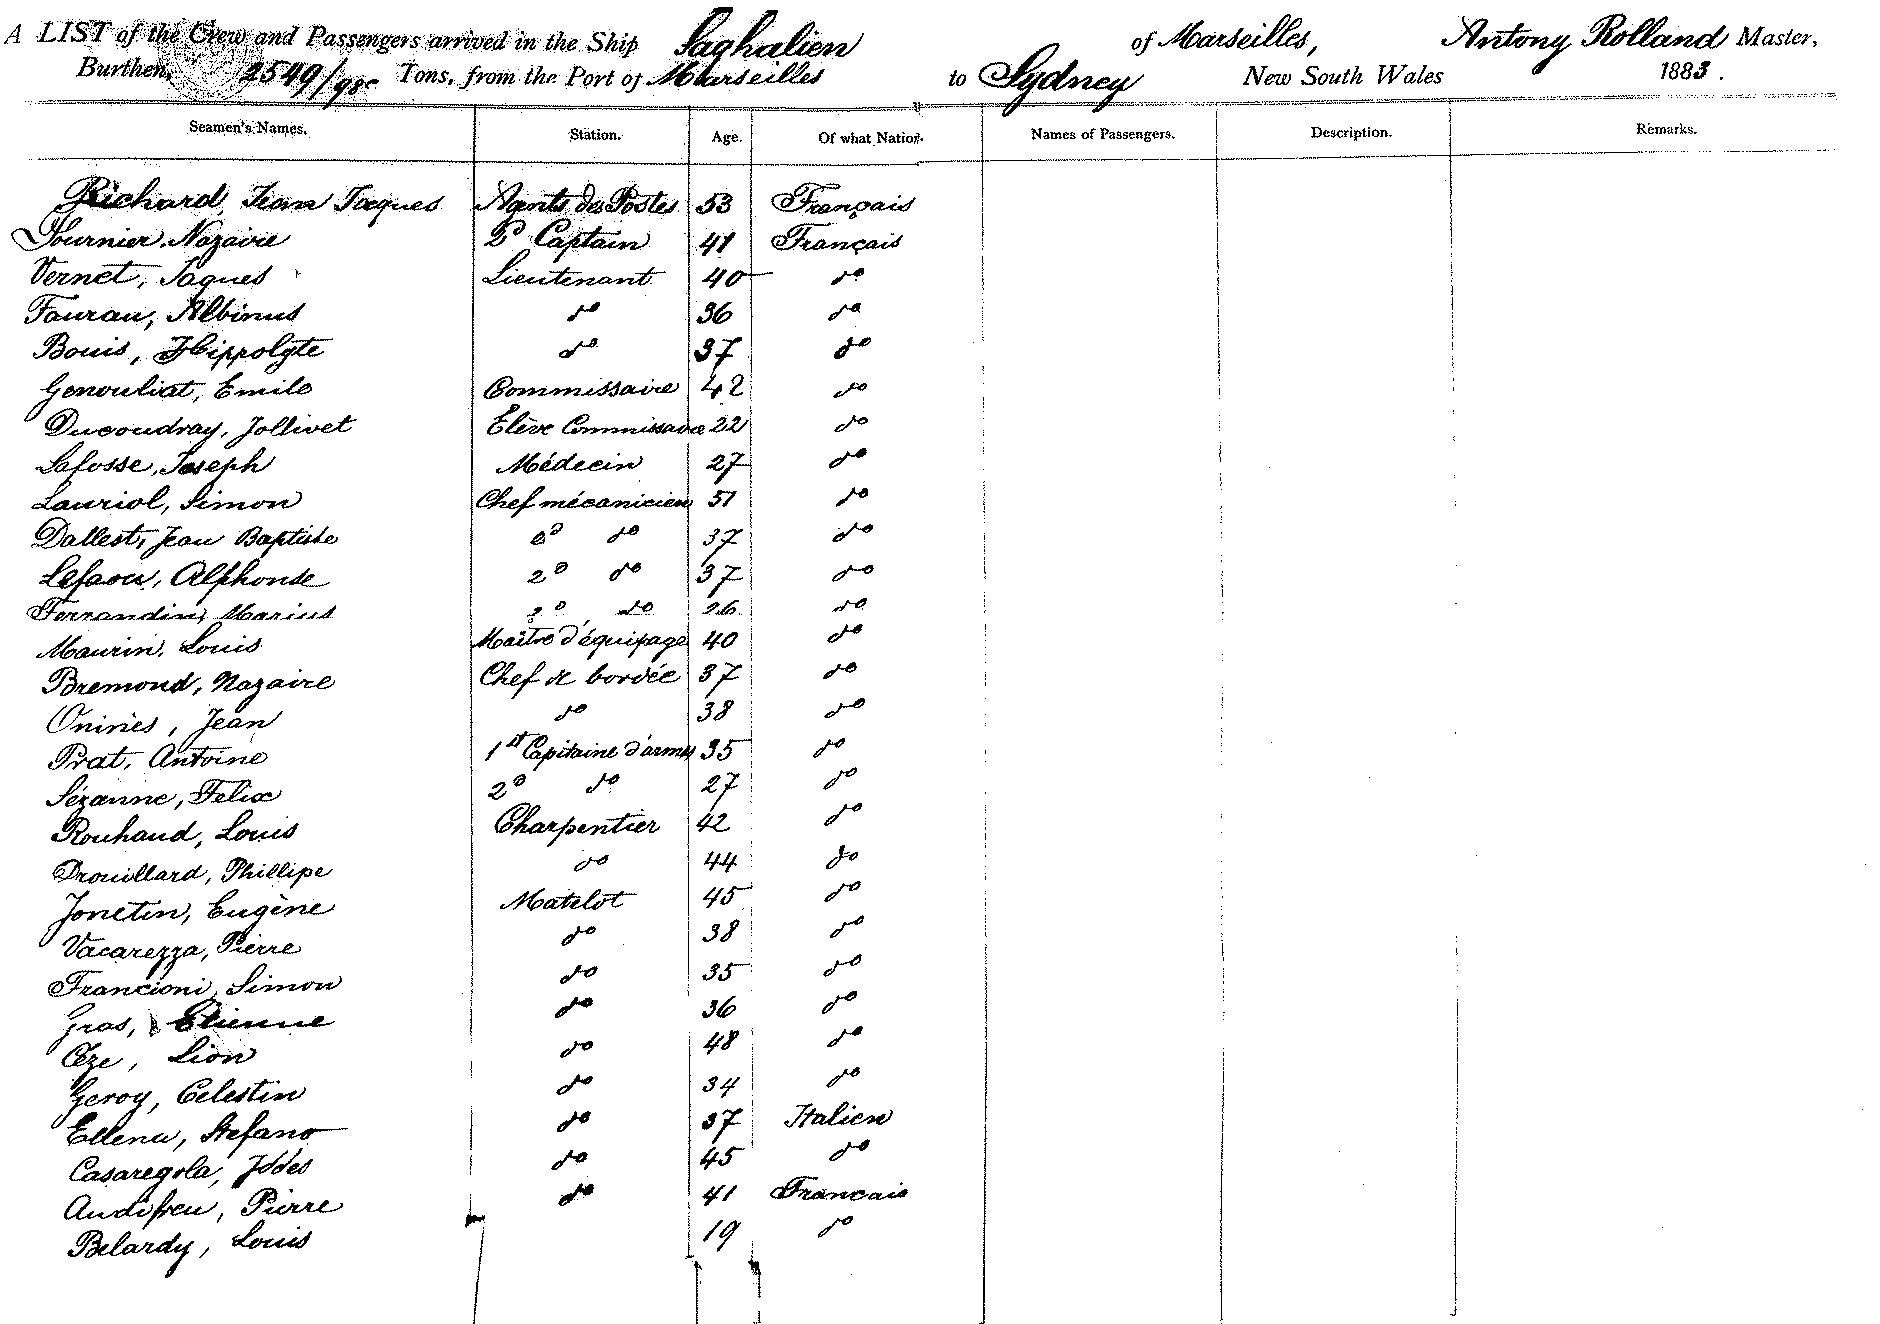 A LIST of the Crew and Passengers arrived in the Ship Saghalien of Marseilles, Antony Rolland Master,
Burthen, 2549/980 Tons, from the Port of Marseilles to Sydney New South Wales 1883.
Seamen's Names. Station. Age. Of what Nation. Names of Passengers. Description. Remarks.
Richard, Jean Jacques Agents des Postes 53 Français
Fournier, Nazaire 2d Captain 41 Français
Vernet, Jaques Lieutenant 40 do
Fourau, Albinus do 36 do
Bouis, Hippolyte do 37 do
Genouliat, Emile Commissaire 42 do
Ducoudray, Jollivet Elève Commissaire 22 do
Lafosse, Joseph Médecin 27 do
Lauriol, Simon Chef mécanicien 51 do
Dallest, Jean Baptiste 2d do 37 do
Alphonse 2d do 37 do
Ferrandin, Marius do 26 do
Maurin, Louis Maître d'équipage 40 do
Bremond, Nazaire Chef de bordée 37 do
Jean do 38 do
Prat, Antoine 1st Capitaine d'armes 35 do
Sézanne, Felix 2d do 27 do
Rouhaud, Louis Charpentier 42 do
Drouillard, Phillipe do 44 do
Jonetin, Eugène Matelot 45 do
Vacarezza, Pierre do 38 do
Francioni, Simon do 35 do
Gras, Etienne do 36 do
Lion do 48 do
Geroy, Celestin do 34 do
Ellena, Stefano do 37 Italien
Casaregola, do 45 do
Pierre do 41 Francais
Belardy, Louis 19 do